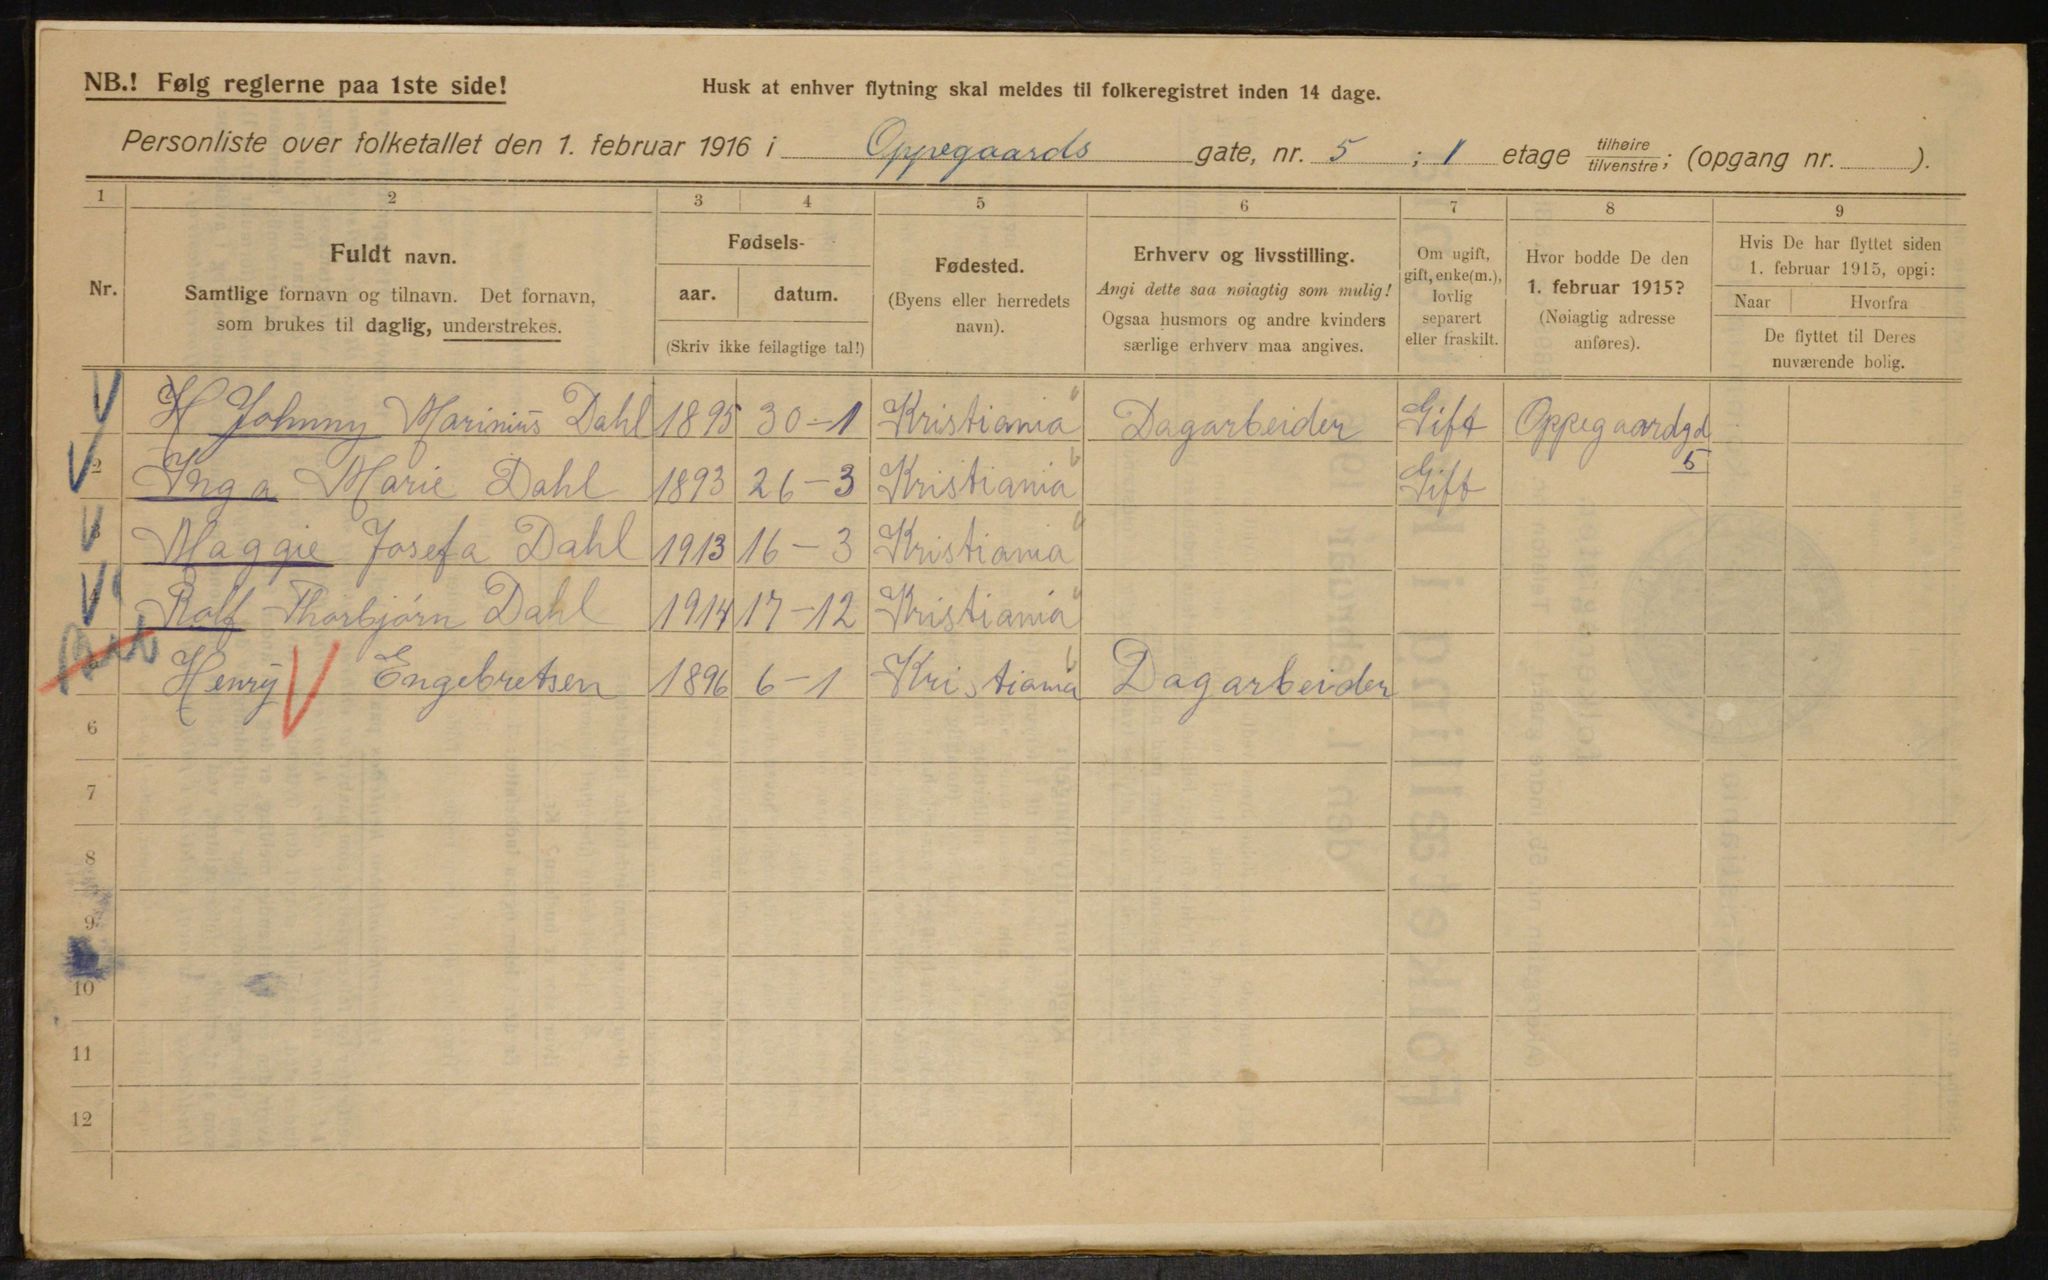 NB.! Følg reglerne paa 1ste side!
Husk at enhver flytning skal meldes til folkeregistret inden 14 dage.
Personliste over folketallet den 1. februar 1916 i Oppegaards gate, nr. 5 ; 1 etage tilhøire/tilvenstre; (opgang nr. ).
1 2 3 4 5 6 7 8 9
Nr.
Fuldt navn.
Samtlige fornavn og tilnavn. Det fornavn,
som brukes til daglig, understrekes.
Fødsels-
aar. datum.
(Skriv ikke feilagtige tal!)
Fødested.
(Byens eller herredets
navn).
Erhverv og livsstilling.
Angi dette saa nøiagtig som mulig!
Ogsaa husmors og andre kvinders
særlige erhverv maa angives.
Om ugift,
gift, enke(m.),
lovlig
separert
eller fraskilt.
Hvor bodde De den
1. februar 1915?
(Nøiagtig adresse
anføres).
Hvis De har flyttet siden
1. februar 1915, opgi:
Naar Hvorfra
De flyttet til Deres
nuværende bolig.
H Johnny Marinius Dahl 1895 30-1 Kristiania Dagarbeider Gift Oppegaardgd 5
2 Inga Marie Dahl 1893 26-3 Kristiania Gift
3 Maggie Josefa Dahl 1913 16-3 Kristiania
Rolf Thorbjørn Dahl 1914 17-12 Kristiania
Henry Engebretsen 1896 6-1 Kristiania Dagarbeider
6
7
8
9
10
11
12